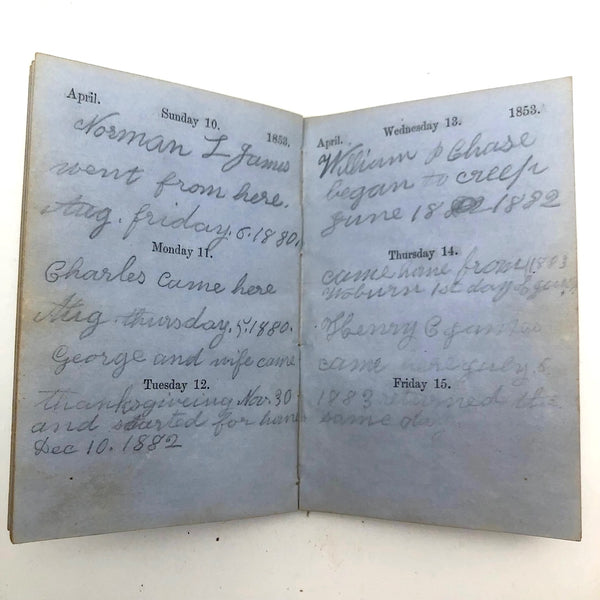 April.
Sunday 10.
1853.
Norman L James
went from here.
Aug. friday. 6. 1880.
Monday 11.
Charles came here
Aug thursday. 5. 1880.
George and wife came
Tuesday 12.
thanksgiveing Nov. 30
and started for home
Dec 10. 1882
April.
Wednesday 13.
1853.
William P Chase
began to creep
June 18 1882
Thursday 14.
came home from 1883
Woburn 1st day of
Henry C James
came here July 6.
Friday 15.
1883 returned the
same day